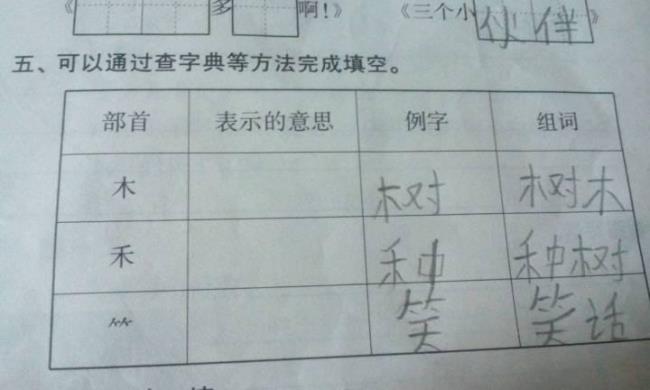 《 多 啊！》 《三个小伙伴》
五、可以通过查字典等方法完成填空。
部首 表示的意思 例字 组词
木 树 树木
禾 种 种树
⺮ 笑 笑话